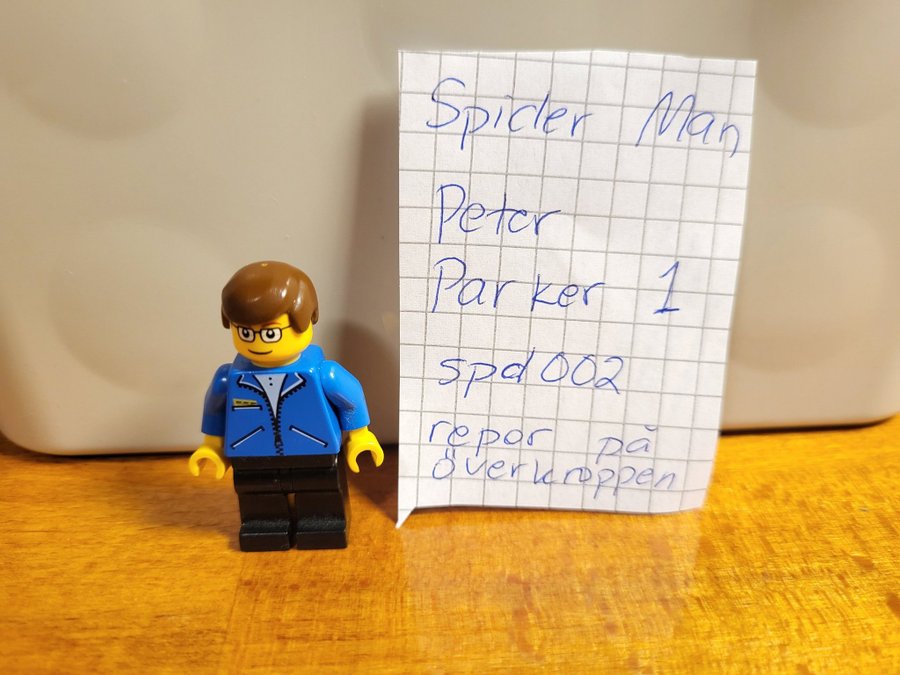 Spider Man
Peter
Parker 1
spd002
repor på
överkroppen